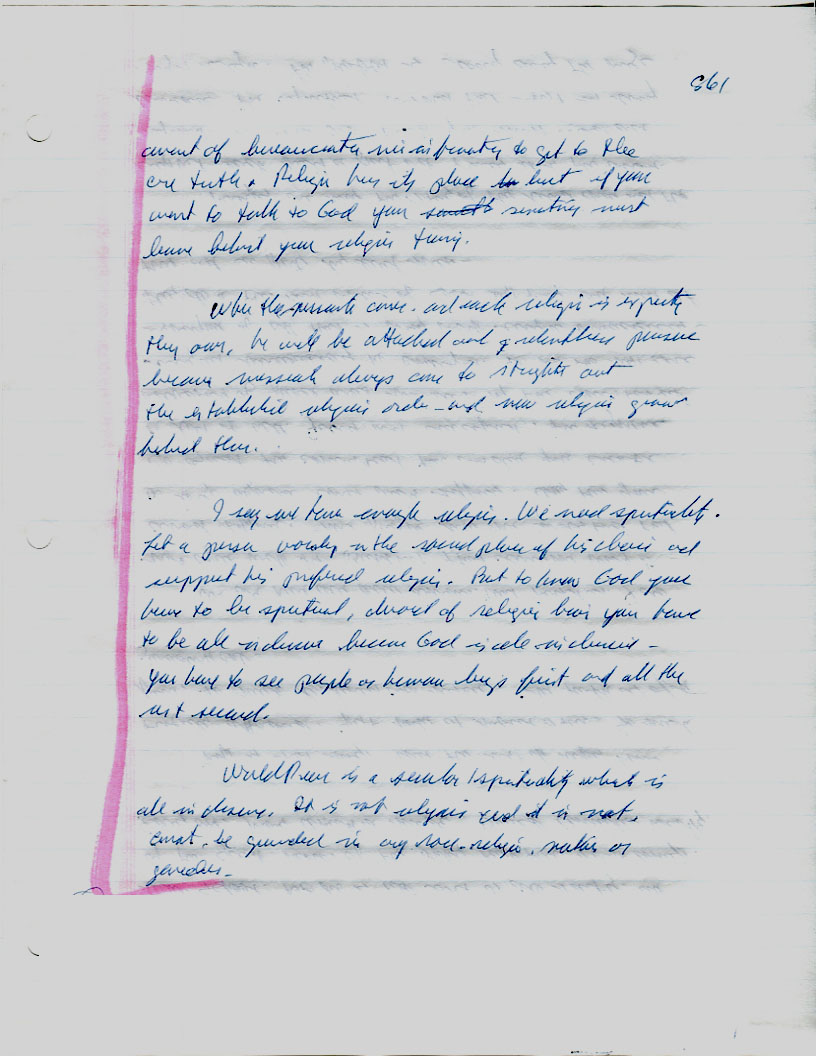 861
of bureaucratic to get to the
core truth. Religion has its place but if you
want to talk to God you sometimes must
leave behind your religion
When the messiah comes and each religion is expecting
their own, he will be attacked and
because messiah always come to straighten out
the established religious order - and new religion grows
behind them.
I say we have enough religion. We need spirituality.
Let a person worship in the place of his choice and
support his preferred religion. But to know God you
have to be spiritual, devoid of religious bias you have
to be all inclusive because God is all inclusive -
you have to see people as human beings first and all the
rest second.
World Peace is a secular spirituality which is
all inclusive. It is not religious and it is not,
cannot be grounded in any race - religion, nation or
gender -